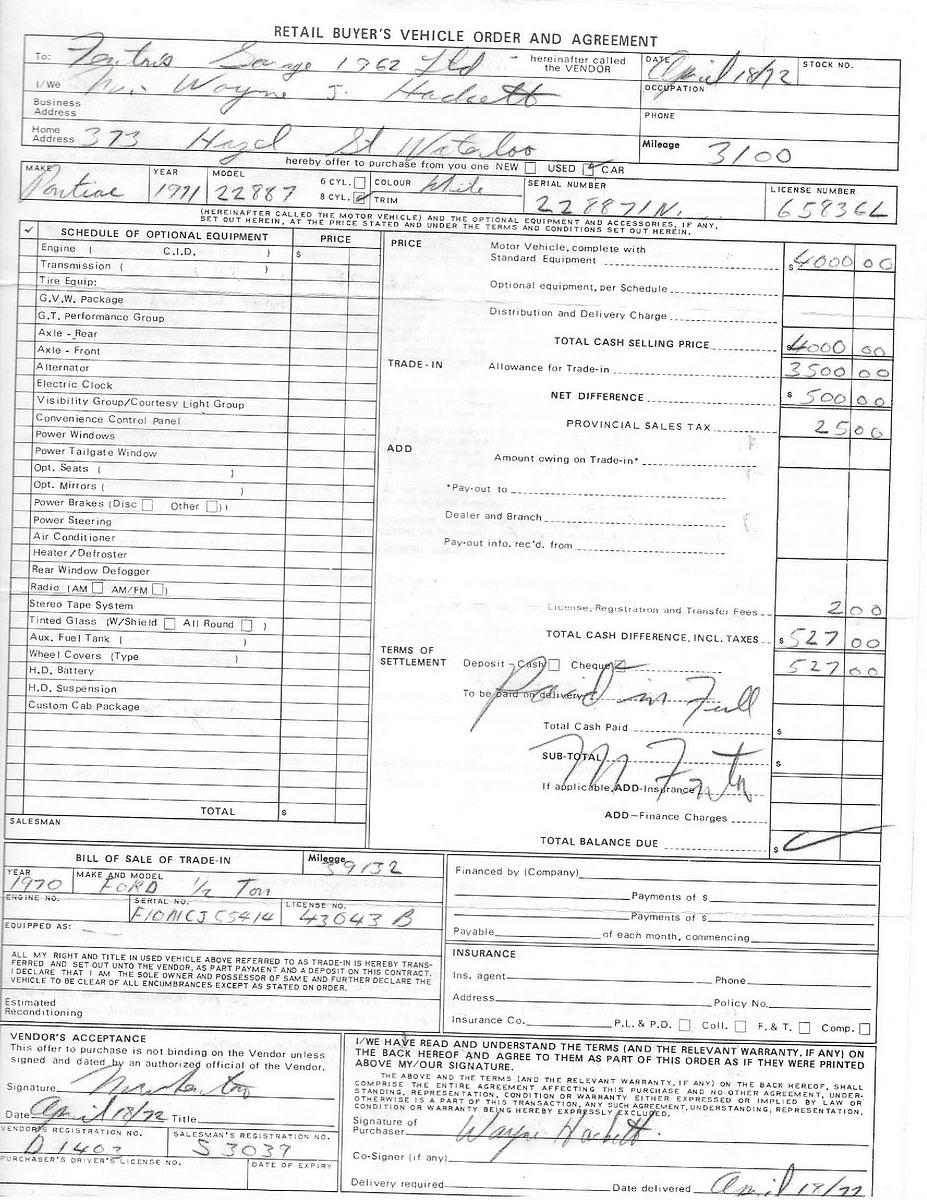 RETAIL BUYER'S VEHICLE ORDER AND AGREEMENT
To: Garage 1962 Ltd hereinafter called the VENDOR DATE April 18/72 STOCK NO.
I/We Wayne J. Hackett OCCUPATION
Business Address PHONE
Home Address 373 Hazel St Waterloo Mileage 3100
hereby offer to purchase from you one NEW USED CAR
MAKE Pontiac YEAR 1971 MODEL 22887 6 CYL. 8 CYL. COLOUR White TRIM SERIAL NUMBER 228871N. LICENSE NUMBER 65836L
(HEREINAFTER CALLED THE MOTOR VEHICLE) AND THE OPTIONAL EQUIPMENT AND ACCESSORIES, IF ANY,
SET OUT HEREIN, AT THE PRICE STATED AND UNDER THE TERMS AND CONDITIONS SET OUT HEREIN.
✓ SCHEDULE OF OPTIONAL EQUIPMENT PRICE
Engine ( C.I.D. ) $
Transmission ( )
Tire Equip:
G.V.W. Package
G.T. Performance Group
Axle - Rear
Axle - Front
Alternator
Electric Clock
Visibility Group/Courtesy Light Group
Convenience Control Panel
Power Windows
Power Tailgate Window
Opt. Seats ( )
Opt. Mirrors ( )
Power Brakes (Disc Other ))
Power Steering
Air Conditioner
Heater/Defroster
Rear Window Defogger
Radio (AM AM/FM )
Stereo Tape System
Tinted Glass (W/Shield All Round )
Aux. Fuel Tank ( )
Wheel Covers (Type )
H.D. Battery
H.D. Suspension
Custom Cab Package
TOTAL $
SALESMAN
PRICE Motor Vehicle, complete with
Standard Equipment $4000 00
Optional equipment, per Schedule
Distribution and Delivery Charge
TOTAL CASH SELLING PRICE $4000 00
TRADE-IN Allowance for Trade-in 3500 00
NET DIFFERENCE $ 500 00
PROVINCIAL SALES TAX 25 00
ADD Amount owing on Trade-in*
*Pay-out to
Dealer and Branch
Pay-out info. rec'd. from
License, Registration and Transfer Fees 2 00
TOTAL CASH DIFFERENCE, INCL. TAXES $527 00
TERMS OF SETTLEMENT Deposit Cash Cheque 527 00
To be paid on delivery Paid in Full
Total Cash Paid $
SUB-TOTAL $
If applicable, ADD-Insurance
ADD-Finance Charges
TOTAL BALANCE DUE $
BILL OF SALE OF TRADE-IN Mileage 39132
YEAR 1970 MAKE AND MODEL FORD 1/2 Ton
ENGINE NO. SERIAL NO. F10MCJ55414 LICENSE NO. 43043 B
EQUIPPED AS:
ALL MY RIGHT AND TITLE IN USED VEHICLE ABOVE REFERRED TO AS TRADE-IN IS HEREBY TRANS-
FERRED AND SET OUT UNTO THE VENDOR, AS PART PAYMENT AND A DEPOSIT ON THIS CONTRACT.
I DECLARE THAT I AM THE SOLE OWNER AND POSSESSOR OF SAME AND FURTHER DECLARE THE
VEHICLE TO BE CLEAR OF ALL ENCUMBRANCES EXCEPT AS STATED ON ORDER.
Estimated
Reconditioning
Financed by (Company)
Payments of $
Payments of $
Payable of each month, commencing
INSURANCE
Ins. agent Phone
Address Policy No.
Insurance Co. P.L. & P.D. Coll. F. & T. Comp.
VENDOR'S ACCEPTANCE
This offer to purchase is not binding on the Vendor unless
signed and dated by an authorized official of the Vendor.
Signature
Date April 18/72 Title
VENDOR'S REGISTRATION NO. D 1403 SALESMAN'S REGISTRATION NO. S 3039
PURCHASER'S DRIVER'S LICENSE NO. DATE OF EXPIRY
I/WE HAVE READ AND UNDERSTAND THE TERMS (AND THE RELEVANT WARRANTY, IF ANY) ON
THE BACK HEREOF AND AGREE TO THEM AS PART OF THIS ORDER AS IF THEY WERE PRINTED
ABOVE MY/OUR SIGNATURE.
THE ABOVE AND THE TERMS (AND THE RELEVANT WARRANTY, IF ANY) ON THE BACK HEREOF, SHALL
COMPRISE THE ENTIRE AGREEMENT AFFECTING THIS PURCHASE AND NO OTHER AGREEMENT, UNDER-
STANDING, REPRESENTATION, CONDITION OR WARRANTY EITHER EXPRESSED OR IMPLIED BY LAW OR
OTHERWISE IS A PART OF THIS TRANSACTION, ANY SUCH AGREEMENT, UNDERSTANDING, REPRESENTATION,
CONDITION OR WARRANTY BEING HEREBY EXPRESSLY EXCLUDED.
Signature of Purchaser Wayne Hackett
Co-Signer (if any)
Delivery required Date delivered April 18/72